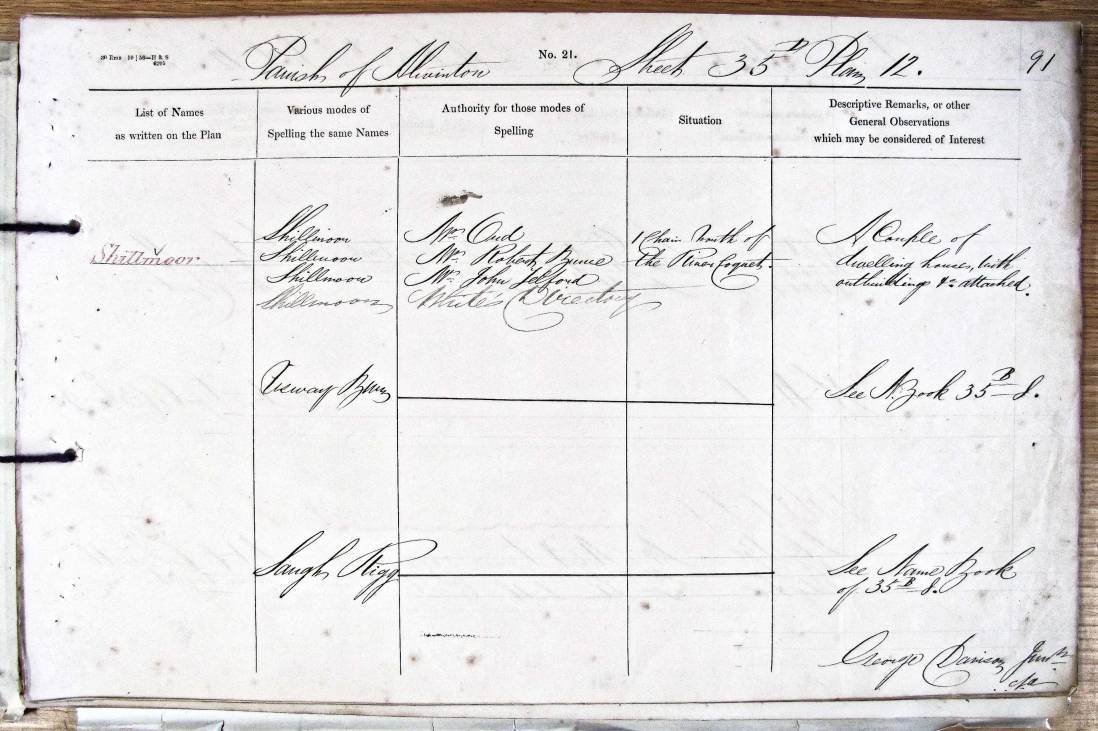 Parish of Alwinton No. 21. Sheet 35 B Plan 12. 91
List of Names
as written on the Plan
Various modes of
Spelling the same Names
Authority for those modes of
Spelling
Situation
Descriptive Remarks, or other
General Observations
which may be considered of Interest
Shillmoor
Shillmoor
Shillmoor
Shillmoor
Shillmoor
Mr. Ord
Mr. Robert Bruce
Mr. John Telford
White's Directory
1 Chain North of
the River Coquet.
A Couple of
dwelling houses, with
outbuildings &c attached.
Usway Burn
See N. Book 35 B 8.
Saugh Rigg
See Name Book
of 35 B 8.
George Davison